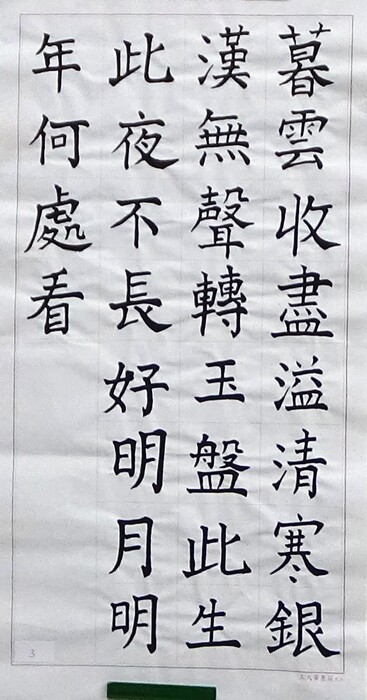 暮雲收盡溢清寒銀
漢無聲轉玉盤此生
此夜不長好明月明
年何處看
3